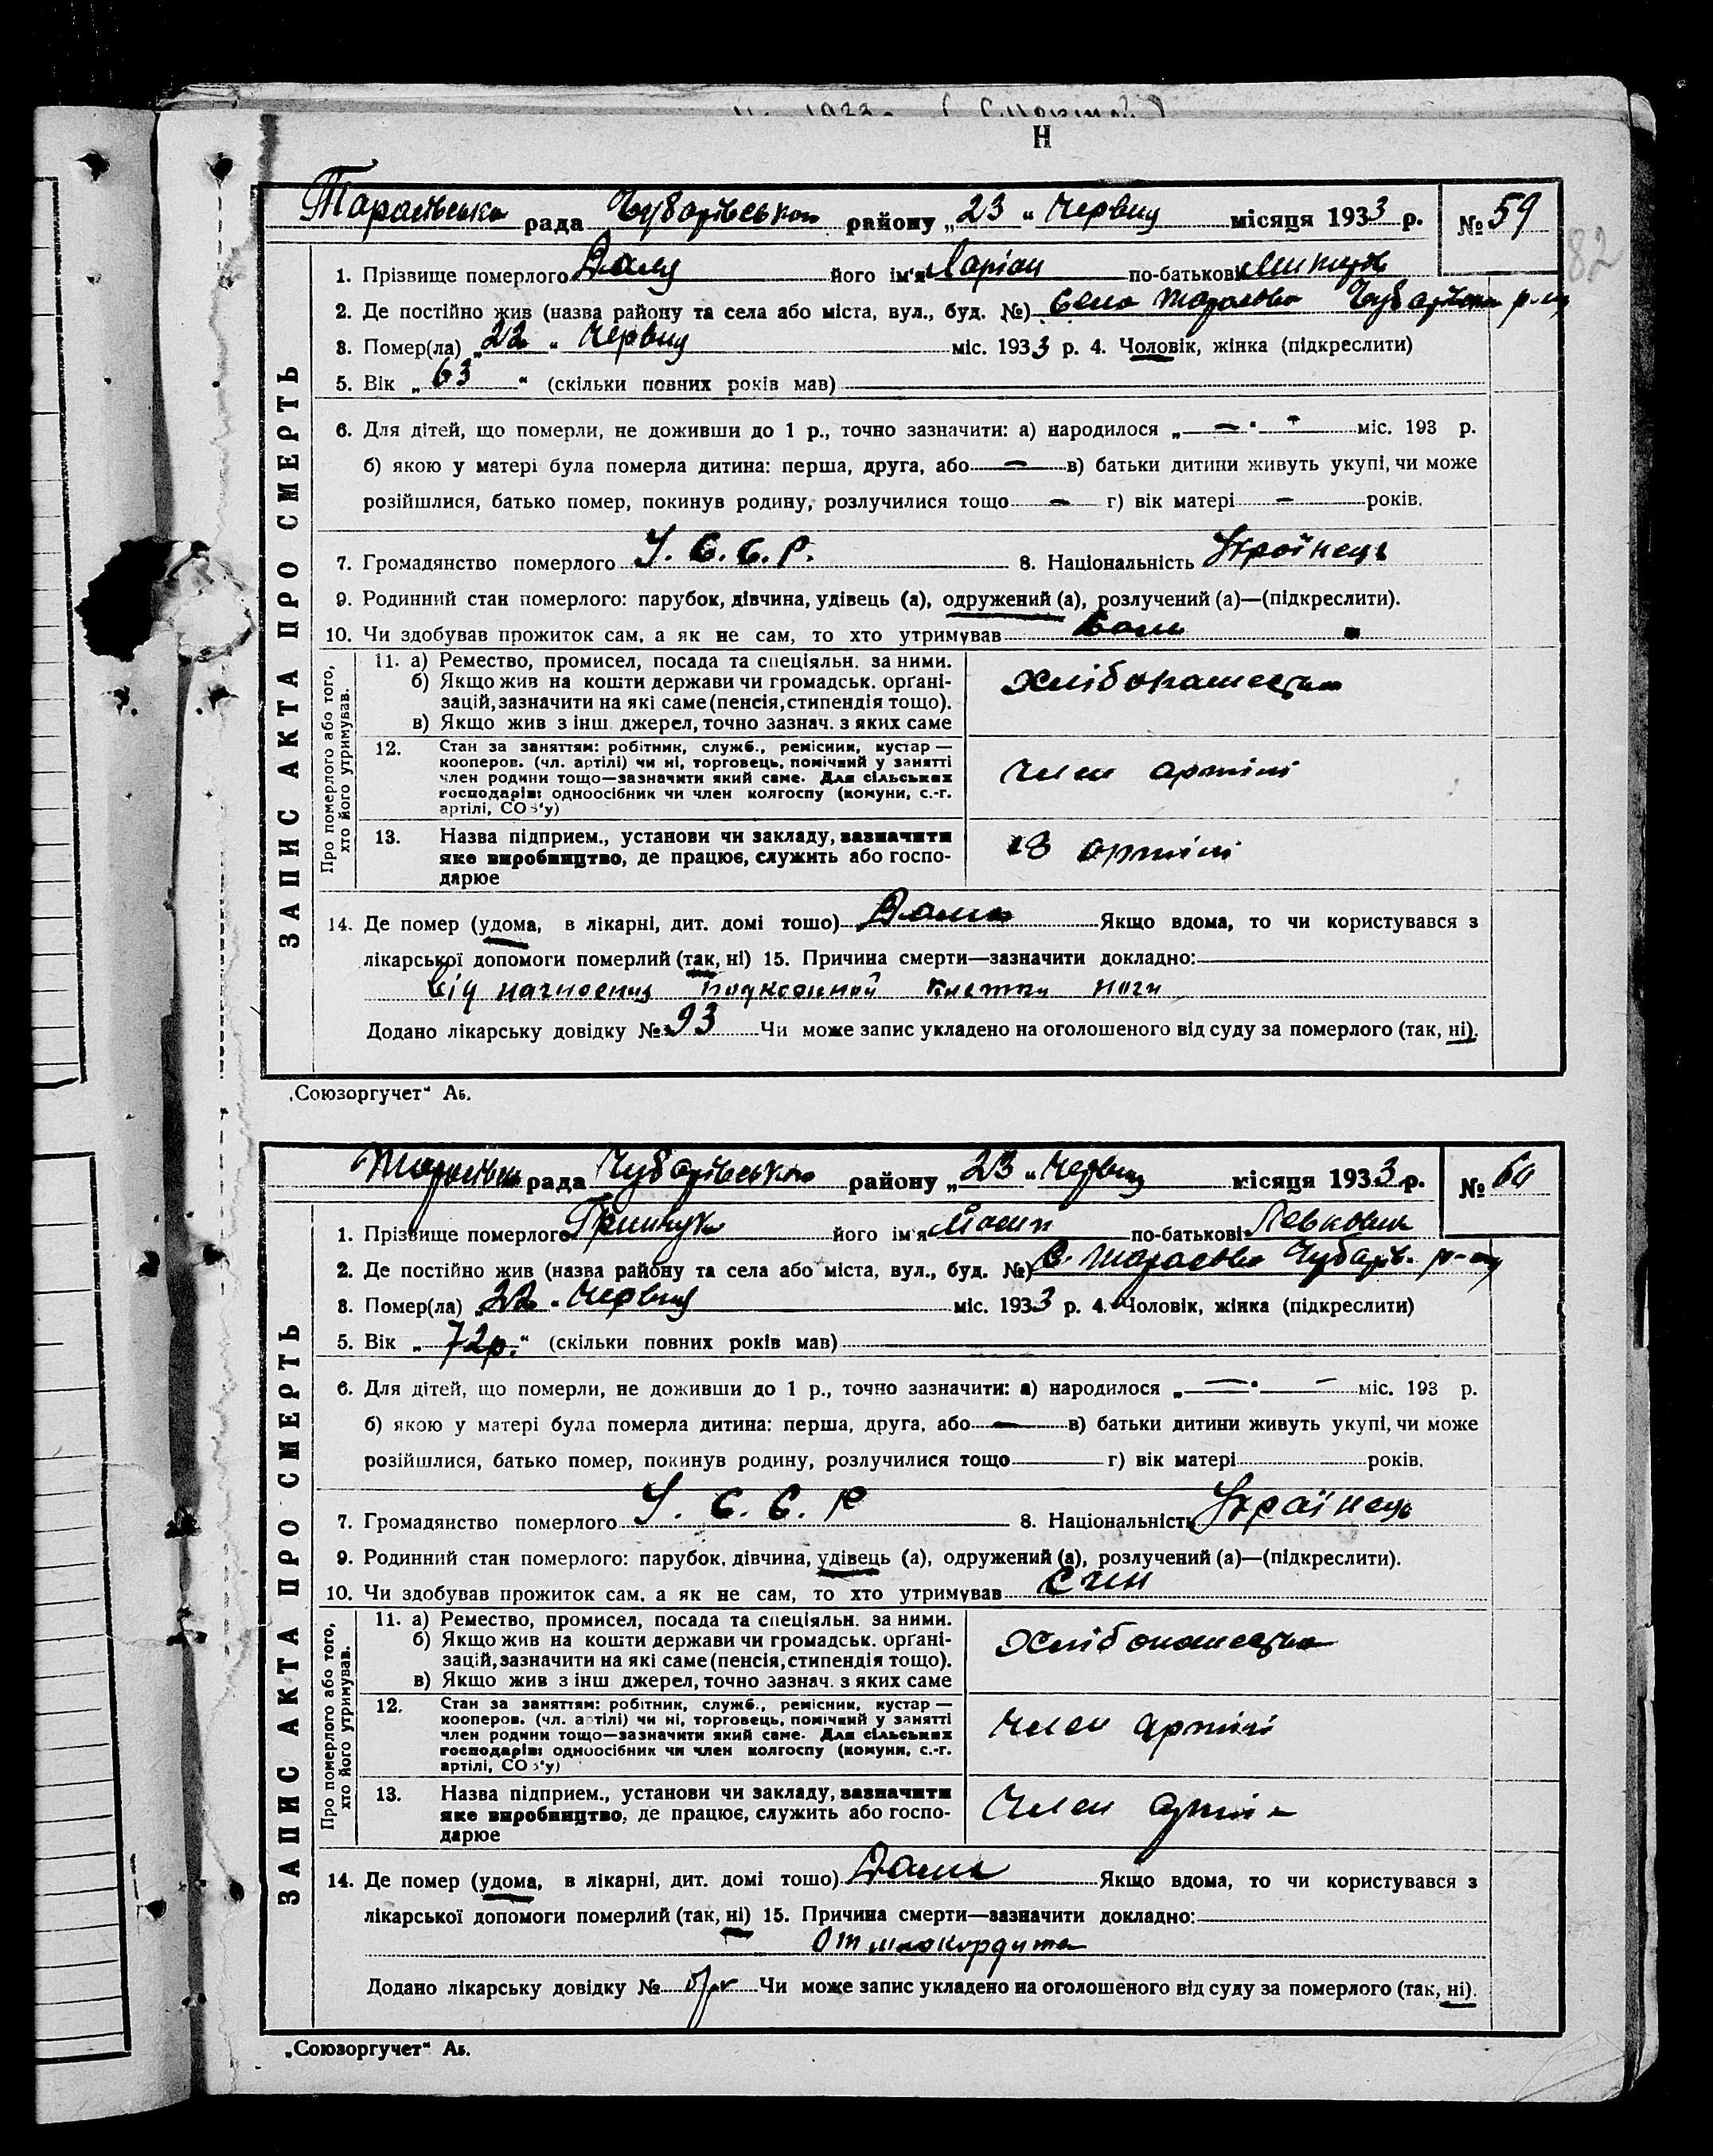 Н
Тарасівська рада Чубарівського району „23“ Червня місяця 1933 р. № 59
82
ЗАПИС АКТА ПРО СМЕРТЬ
1. Прізвище померлого його ім'я Ларіон по-батькові
2. Де постійно жив (назва району та села або міста, вул., буд. №) Село Тарасовка Чубарівськ р-ну
3. Помер(ла) „22“ Червня міс. 1933 р. 4. Чоловік, жінка (підкреслити)
5. Вік „63“ (скільки повних років мав)
6. Для дітей, що померли, не доживши до 1 р., точно зазначити: а) народилося „—“ — міс. 193 р.
б) якою у матері була померла дитина: перша, друга, або — в) батьки дитини живуть укупі, чи може
розійшлися, батько помер, покинув родину, розлучилися тощо — г) вік матері — років.
7. Громадянство померлого У. С. С. Р. 8. Національність Українець
9. Родинний стан померлого: парубок, дівчина, удівець (а), одружений (а), розлучений (а)—(підкреслити).
10. Чи здобував прожиток сам, а як не сам, то хто утримував Сам
Про померлого або того, хто його утримував.
11. а) Ремество, промисел, посада та спеціяльн. за ними.
б) Якщо жив на кошти держави чи громадськ. орґані-
зацій, зазначити на які саме (пенсія, стипендія тощо).
в) Якщо жив з інш. джерел, точно зазнач. з яких саме
Хлібопашество
12. Стан за заняттям: робітник, служб., ремісник, кустар —
кооперов. (чл. артілі) чи ні, торговець, помічний у занятті
член родини тощо—зазначити який саме. Для сільських
господарів: одноосібник чи член колгоспу (комуни, с.-г.
артілі, СОЗ'у)
Член артілі
13. Назва підприєм., установи чи закладу, зазначити
яке виробництво, де працює, служить або госпо-
дарює
В артілі
14. Де помер (удома, в лікарні, дит. домі тошо) Дома Якщо вдома, то чи користувався з
лікарської допомоги померлий (так, ні) 15. Причина смерти—зазначити докладно:
Від ноги
Додано лікарську довідку № 93 Чи може запис укладено на оголошеного від суду за померлого (так, ні).
„Союзоргучет“ Аб.
рада Чубарівського району „23“ Червня місяця 1933 р. № 60
ЗАПИС АКТА ПРО СМЕРТЬ
1. Прізвище померлого Гринчук його ім'я Йосип по-батькові Левкович
2. Де постійно жив (назва району та села або міста, вул., буд. №) С. Тарасовка Чубарів. р-ну
3. Помер(ла) „22“ Червня міс. 1933 р. 4. Чоловік, жінка (підкреслити)
5. Вік „72р.“ (скільки повних років мав)
6. Для дітей, що померли, не доживши до 1 р., точно зазначити: а) народилося „—“ — міс. 193 р.
б) якою у матері була померла дитина: перша, друга, або — в) батьки дитини живуть укупі, чи може
розійшлися, батько помер, покинув родину, розлучилися тощо г) вік матері років.
7. Громадянство померлого У. С. С. Р 8. Національність Українець
9. Родинний стан померлого: парубок, дівчина, удівець (а), одружений (а), розлучений (а)—(підкреслити).
10. Чи здобував прожиток сам, а як не сам, то хто утримував Син
Про померлого або того, хто його утримував.
11. а) Ремество, промисел, посада та спеціяльн. за ними.
б) Якщо жив на кошти держави чи громадськ. орґані-
зацій, зазначити на які саме (пенсія, стипендія тощо).
в) Якщо жив з інш. джерел, точно зазнач. з яких саме
Хлібопашество
12. Стан за заняттям: робітник, служб., ремісник, кустар —
кооперов. (чл. артілі) чи ні, торговець, помічний у занятті
член родини тощо—зазначити який саме. Для сільських
господарів: одноосібник чи член колгоспу (комуни, с.-г.
артілі, СОЗ'у)
Член артілі
13. Назва підприєм., установи чи закладу, зазначити
яке виробництво, де працює, служить або госпо-
дарює
Член артілі
14. Де помер (удома, в лікарні, дит. домі тошо) Дома Якщо вдома, то чи користувався з
лікарської допомоги померлий (так, ні) 15. Причина смерти—зазначити докладно:
От миокордита
Додано лікарську довідку № Чи може запис укладено на оголошеного від суду за померлого (так, ні).
„Союзоргучет“ Аб.